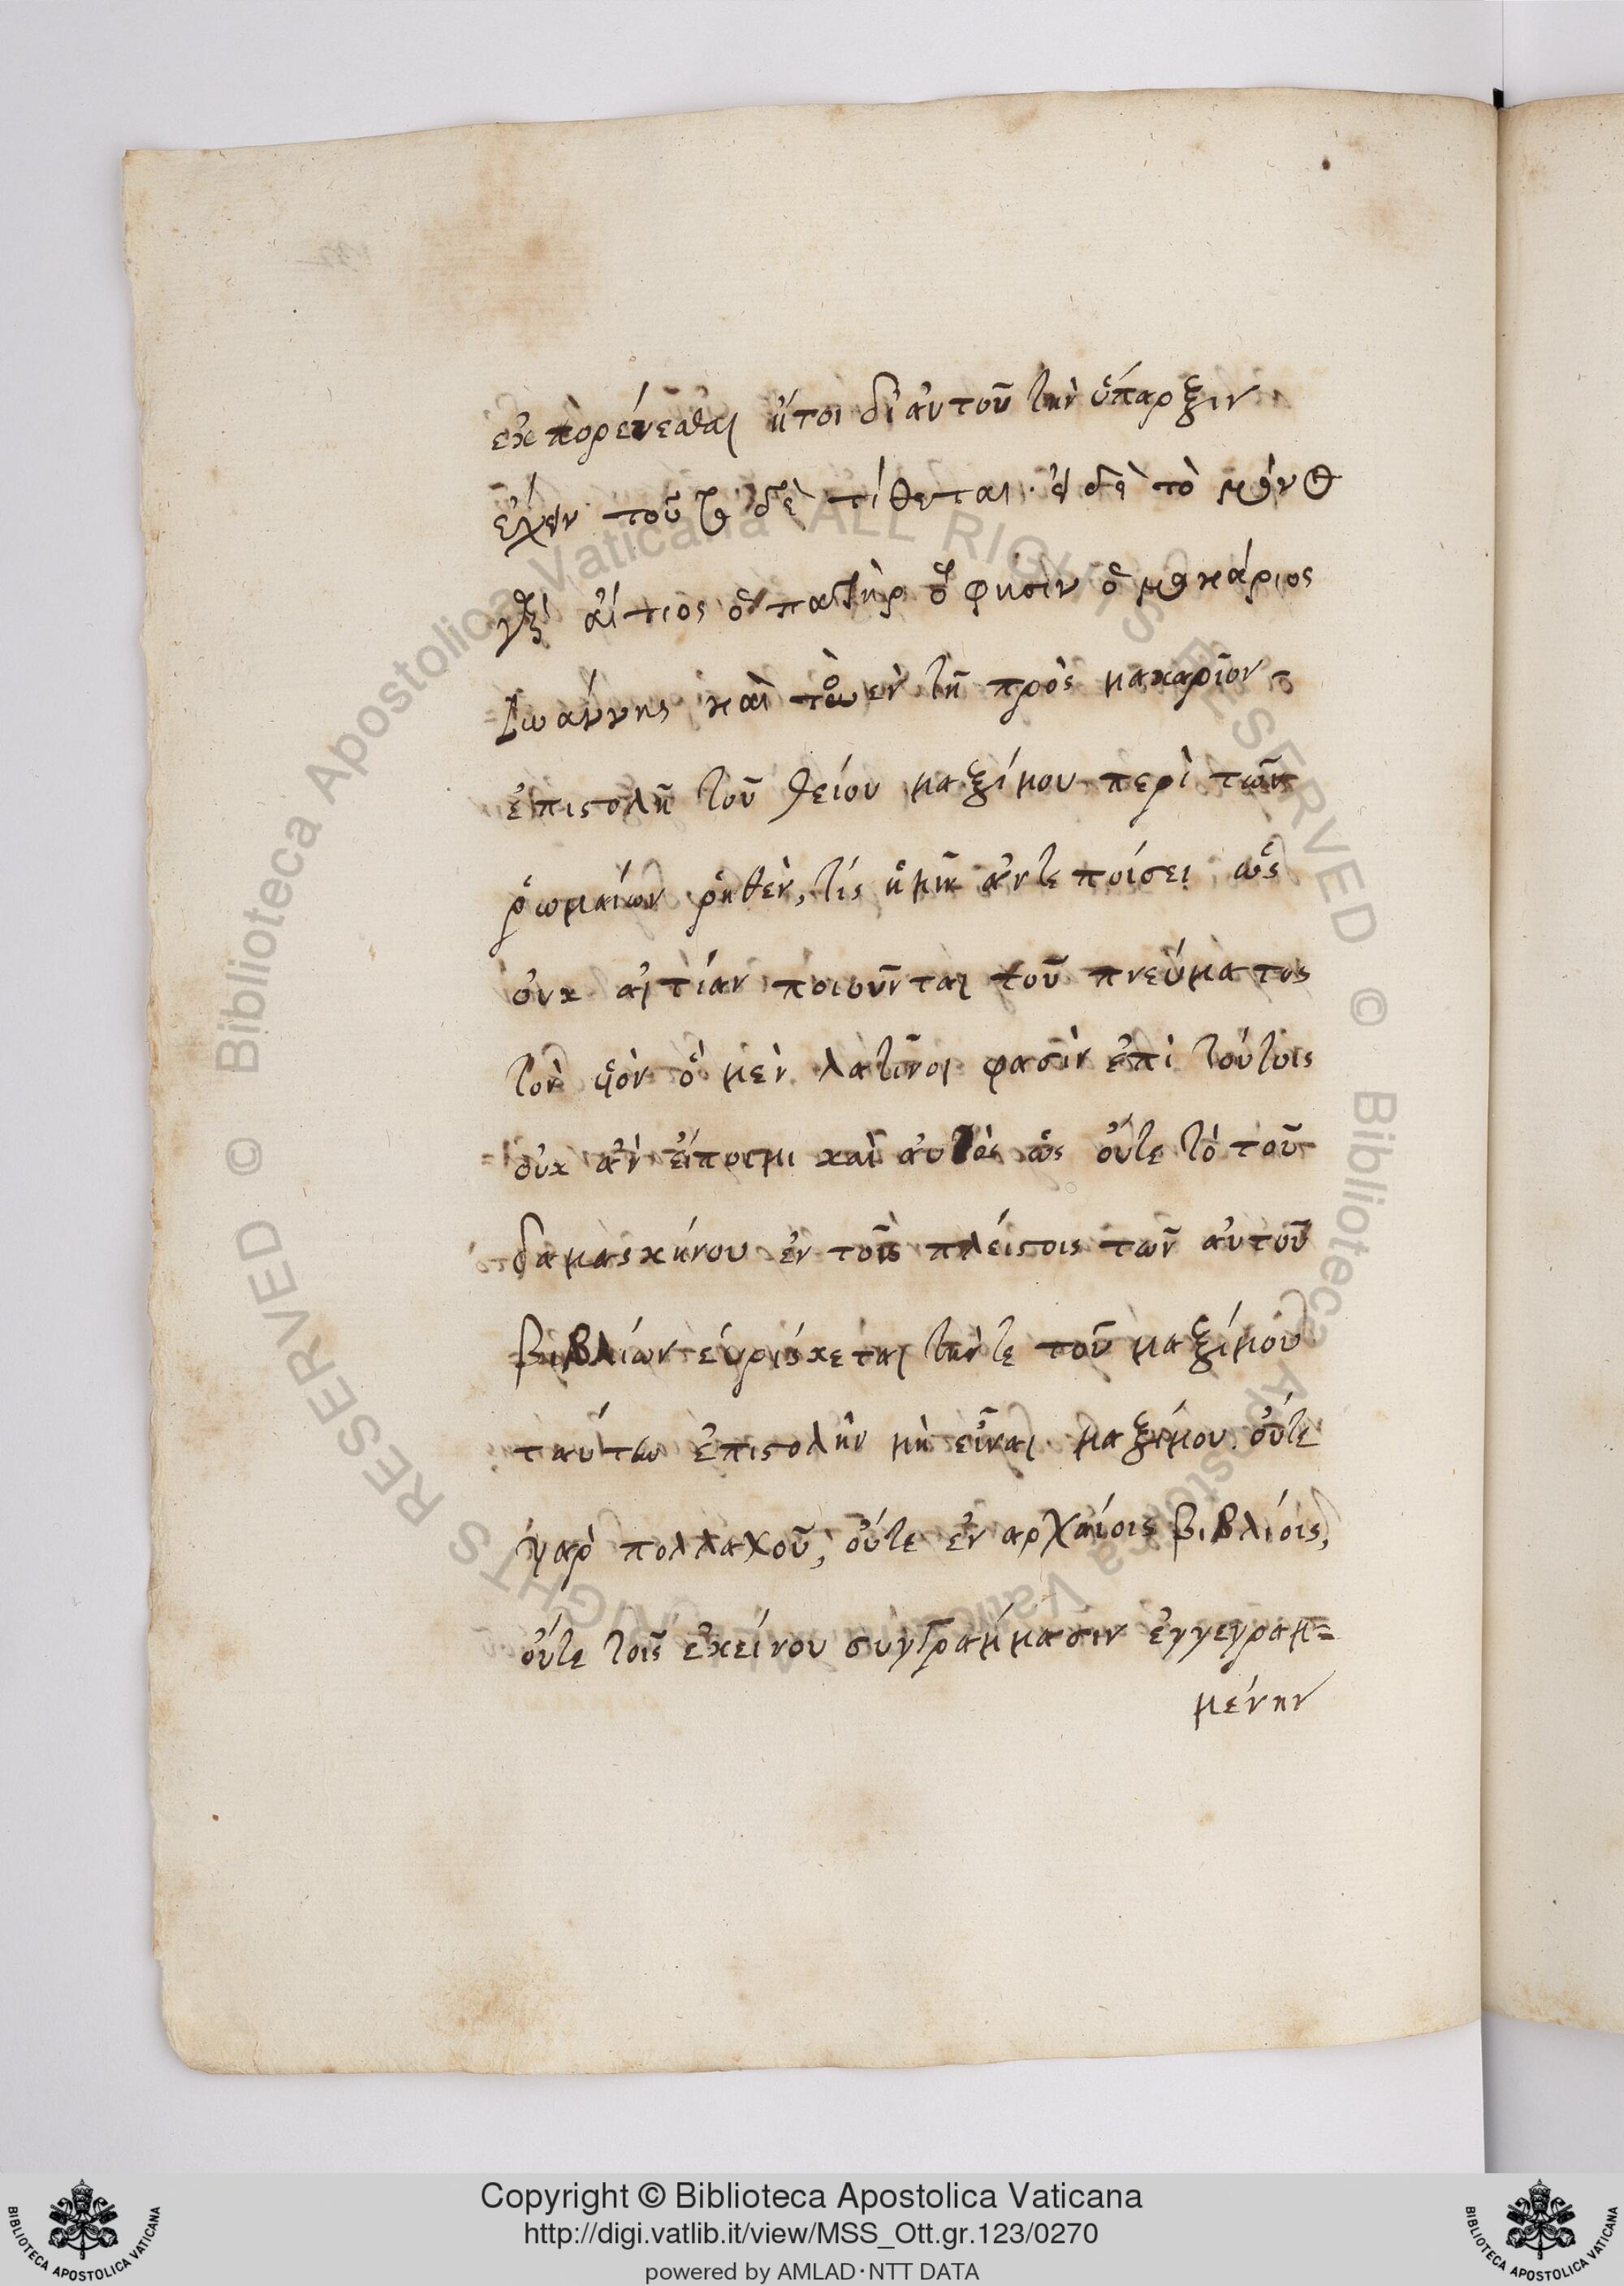 ἐκπορεύεσθαι ἤτοι δι' αὐτοῦ τὴν ὕπαρξιν
ἔχειν τοῦ δὲ τίθεται· εἰ δὲ τὸ
αἴτιος ὁ πατὴρ ὅ φησιν ὁ μακάριος
Ἰωάννης καὶ τὸ ἐν τῇ πρὸς μακαρῖον
ἐπιστολῇ τοῦ θείου μαξίμου περὶ τῶν
ῥωμαίων ῥηθὲν, τίς ἡμῖν
οὐκ αἰτίαν ποιοῦνται τοῦ πνεύματος
τὸν ὑὸν ὃ μὲν λατῖνοι φασὶν ἐπὶ τούτοις
οὐκ ἂν εἴποιμι καὶ αὐτὸς ὡς οὔτε τὸ τοῦ
δαμασκήνου ἐν τοῖς πλείστοις τῶν αὐτοῦ
βιβλίων εὑρίσκεται τήν τε τοῦ μαξίμου
ταύτην ἐπιστολὴν μὴ εἶναι μαξίμου οὔτε
γὰρ πολλαχοῦ, οὔτε ἐν αρχαίοις βιβλίοις,
οὔτε τοῖς ἐκείνου συγγράμμασιν ἐγγεγραμ=
μένην
Copyright © Biblioteca Apostolica Vaticana
http://digi.vatlib.it/view/MSS_Ott.gr.123/0270
powered by AMLAD·NTT DATA